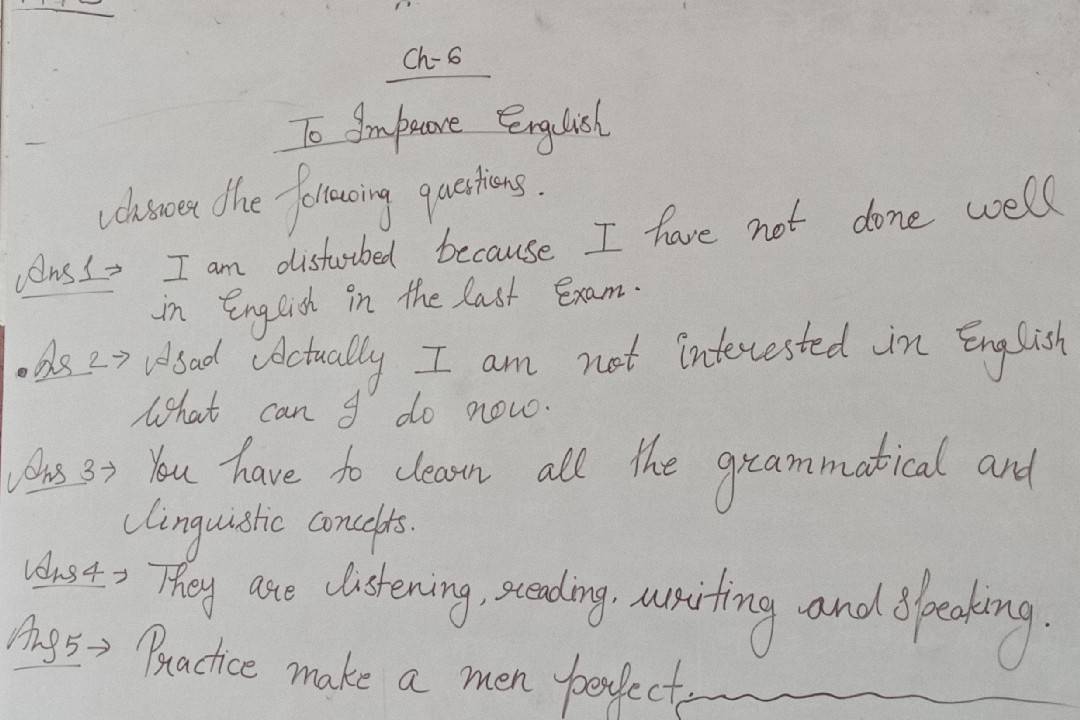 Ch-6
To Improve English
Answer the following questions.
Ans 1→ I am disturbed because I have not done well
in English in the last Exam.
As 2→ Asad Actually I am not interested in English
What can I do now.
Ans 3→ You have to learn all the grammatical and
linguistic concepts.
Ans 4→ They are listening, reading, writing and speaking.
Ans 5→ Practice make a men perfect.